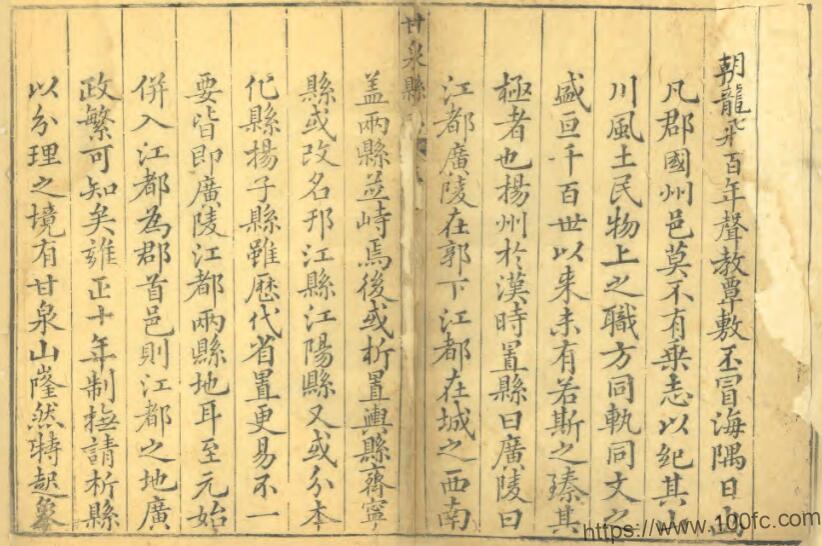 朝龍飛百年聲教覃敷丕冒海隅日出
凡郡國州邑莫不有乗志以紀其山
川風土民物上之職方同軌同文之
盛亘千百世以来未有若斯之臻其
極者也揚州於漢時置縣曰廣陵曰
江都廣陵在郭下江都在城之西南
甘泉縣
盖兩縣並峙焉後或析置輿縣齊寧
縣或改名邗江縣江陽縣又或分本
化縣揚子縣雖歷代省置更易不一
要皆即廣陵江都兩縣地耳至元始
併入江都為郡首邑則江都之地廣
政繁可知矣雍正十年制撫請析縣
以分理之境有甘泉山嶐然特起
https://www.100fc.com